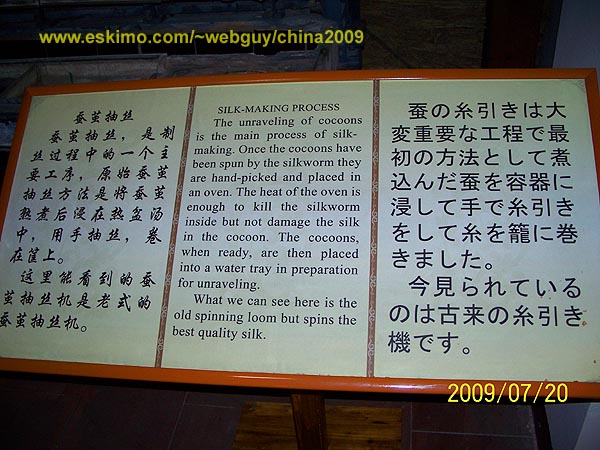 www.eskimo.com/~webguy/china2009
蚕茧抽丝
蚕茧抽丝，是制
丝过程中的一个主
要工序，原始蚕茧
抽丝方法是将蚕茧
熟煮后浸在热盆汤
中，用手抽丝，卷
在筐上。
这里能看到的蚕
茧抽丝机是老式的
蚕茧抽丝机。
SILK-MAKING PROCESS
The unraveling of cocoons
is the main process of silk-
making. Once the cocoons have
been spun by the silkworm they
are hand-picked and placed in
an oven. The heat of the oven is
enough to kill the silkworm
inside but not damage the silk
in the cocoon. The cocoons,
when ready, are then placed
into a water tray in preparation
for unraveling.
What we can see here is the
old spinning loom but spins the
best quality silk.
蚕の糸引きは大
変重要な工程で最
初の方法として煮
込んだ蚕を容器に
浸して手で糸引き
をして糸を籠に巻
きました。
今見られている
のは古来の糸引き
機です。
2009/07/20